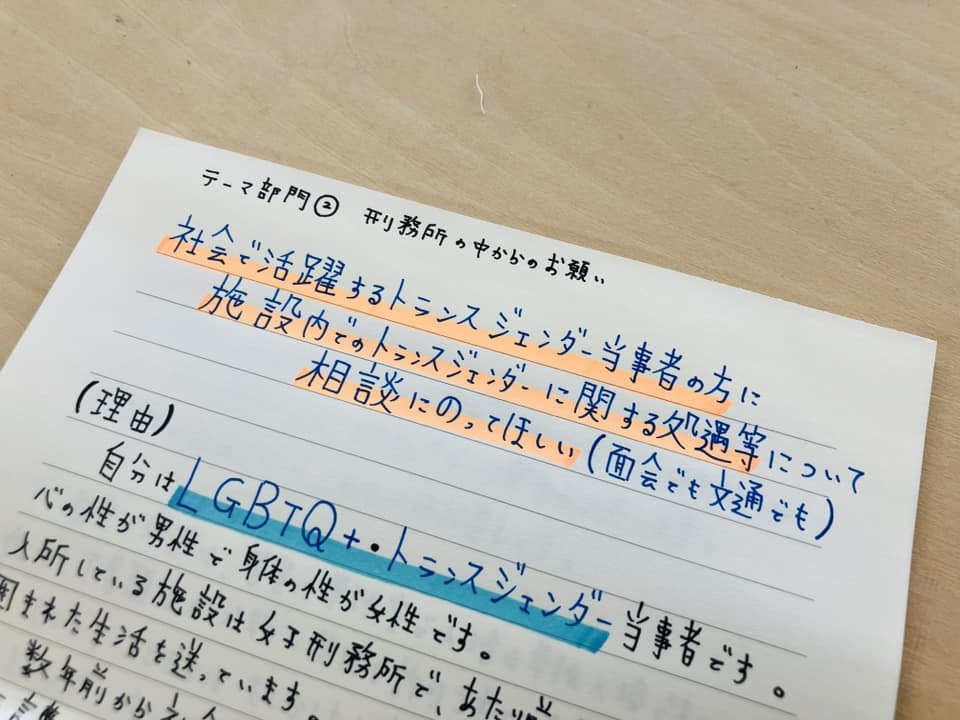 テーマ部門② 刑務所の中からのお願い
社会で活躍するトランスジェンダー当事者の方に
施設内でのトランスジェンダーに関する処遇等について
相談にのってほしい(面会でも文通でも)
(理由)
自分はLGBTQ+・トランスジェンダー当事者です。
心の性が男性で身体の性が女性です。
入所している施設は女子刑務所で、あたり
囲まれた生活を送っています。
数年前から